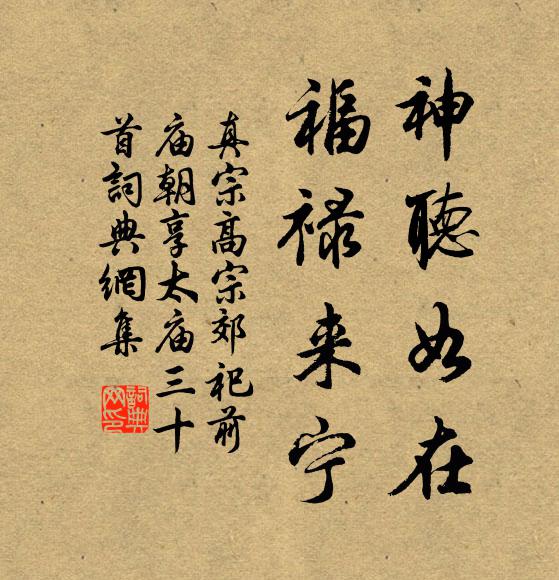 神聽如在
福禄来宁
真宗高宗郊祀前
庙朝享太庙三十
首詞典網集
詞典網印